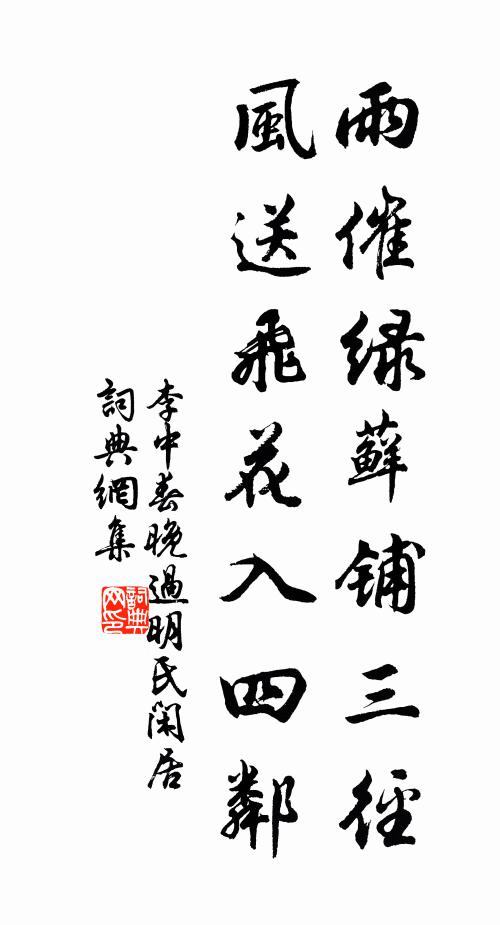 雨催緑蘚鋪三徑
風送飛花入四鄰
李中春晚過明氏閑居
詞典網集
詞典網印